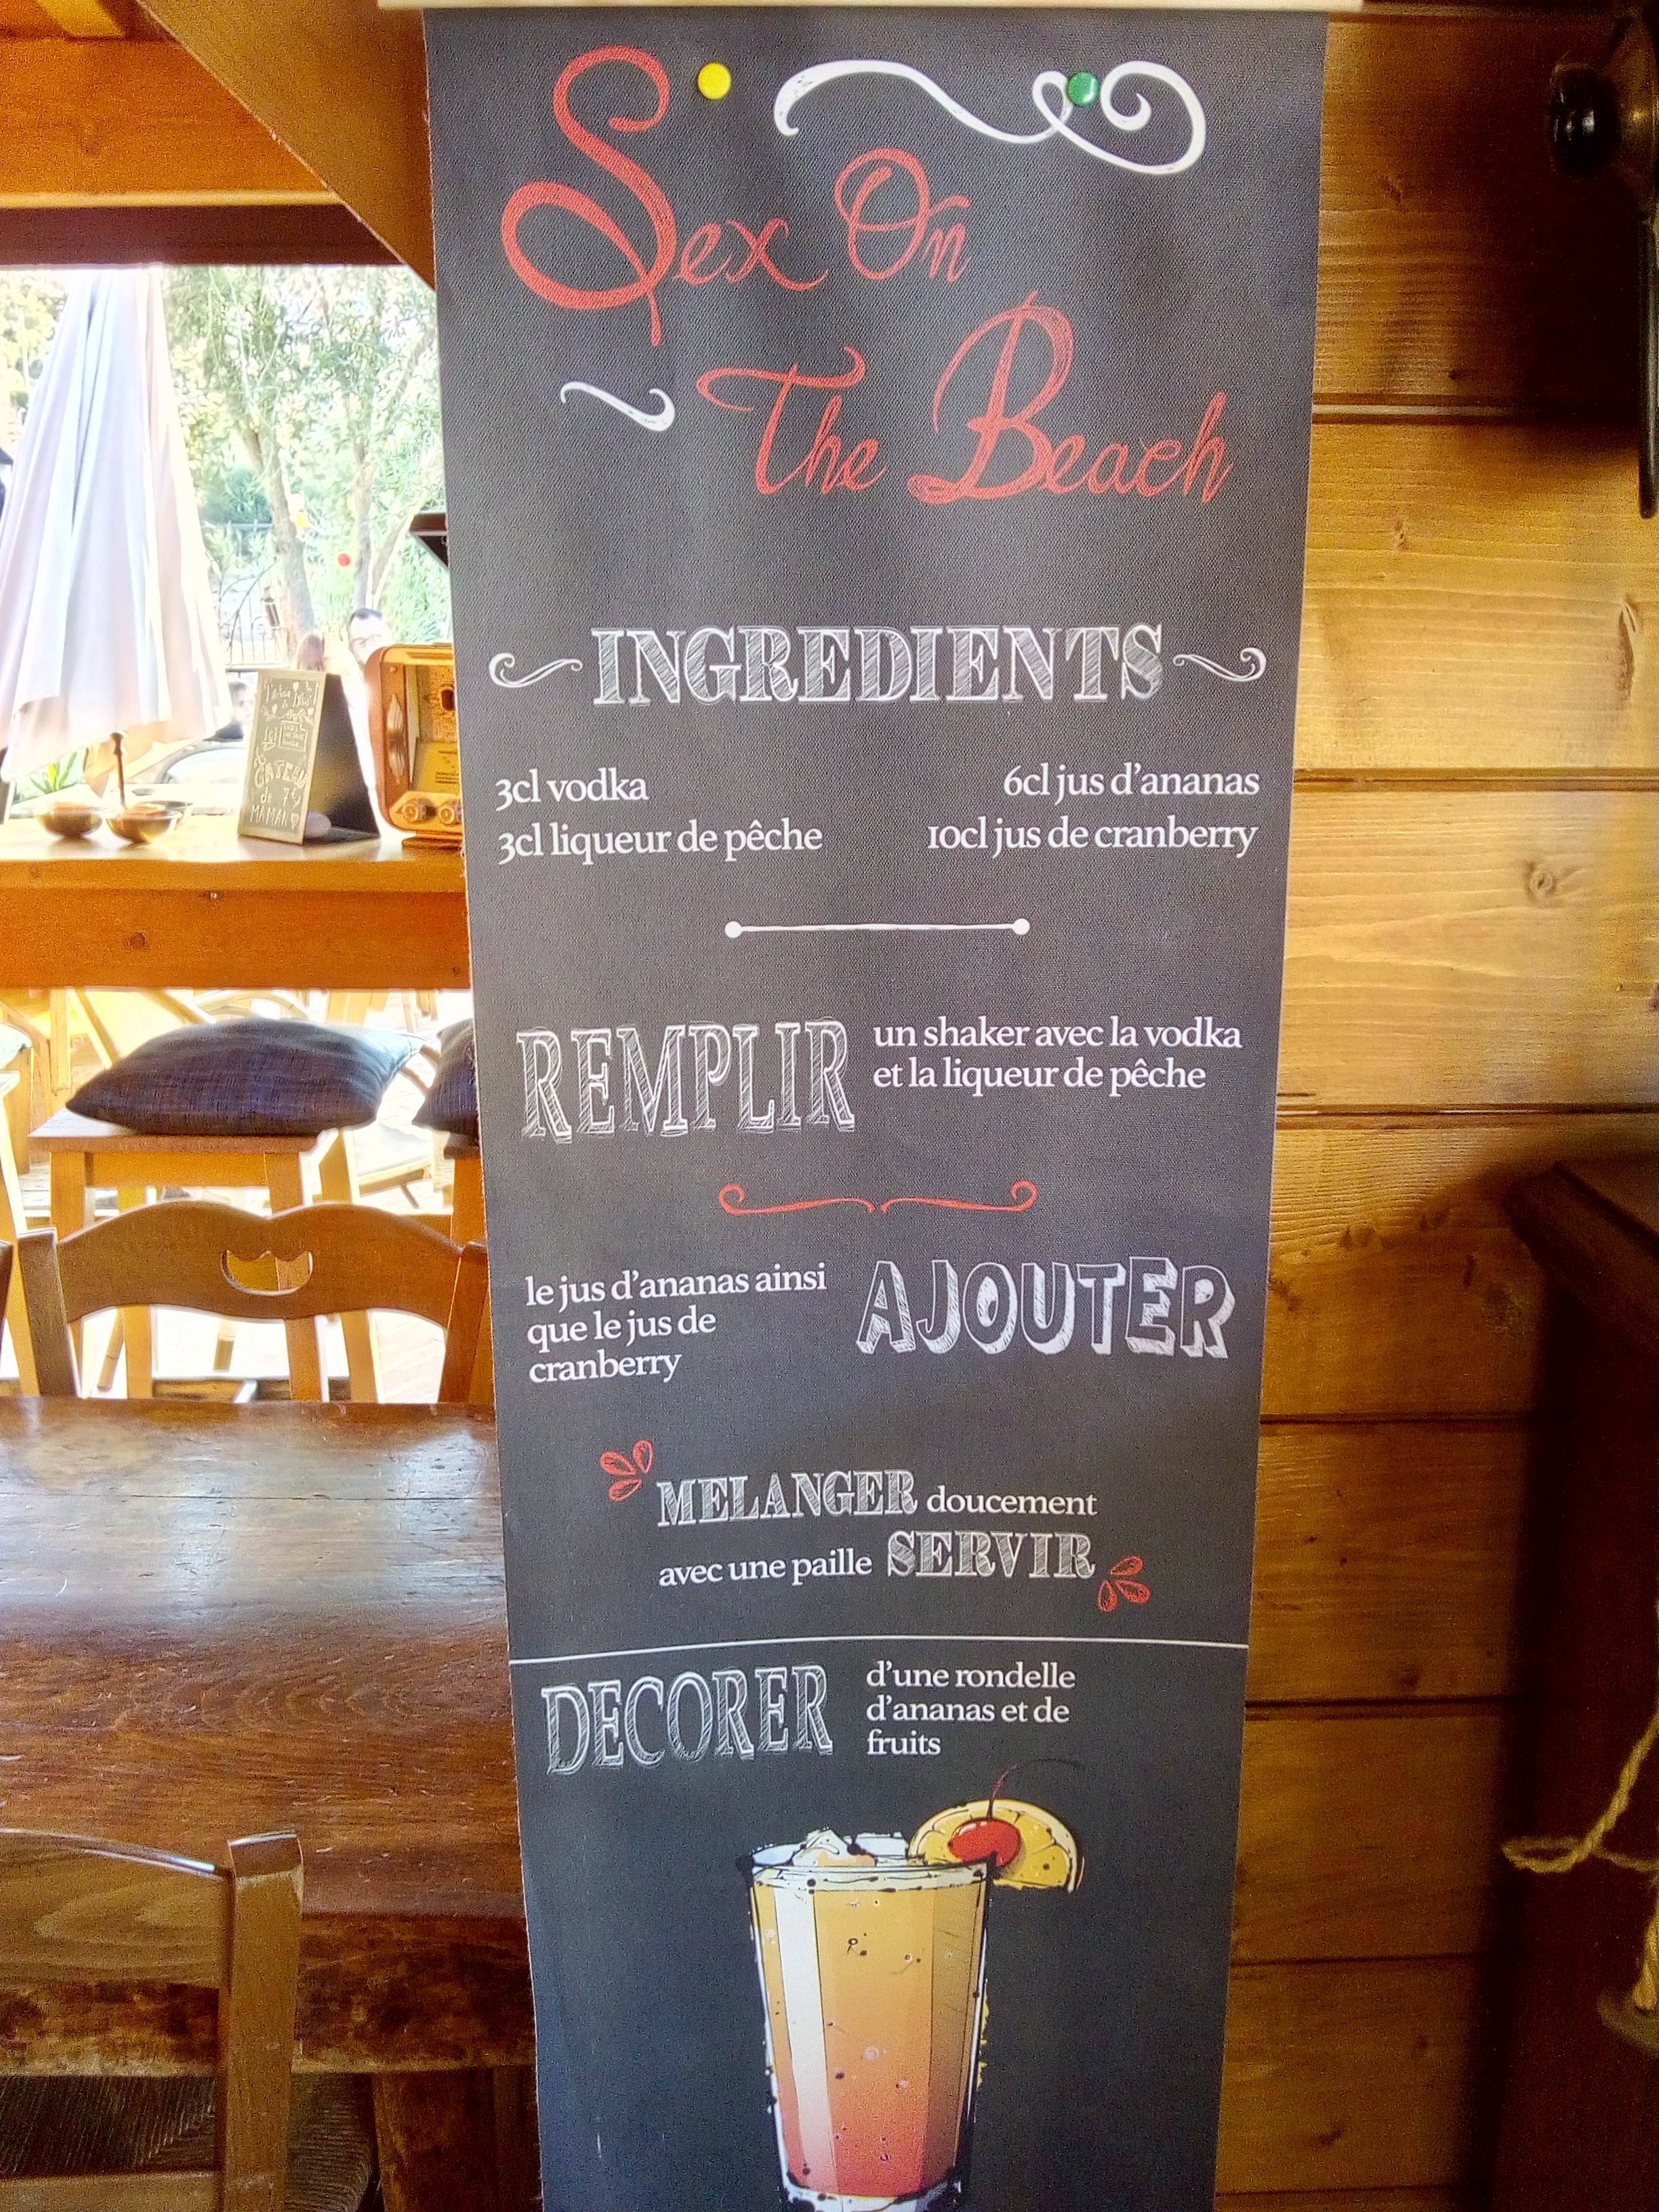 Sex On
The Beach
INGREDIENTS
3cl vodka
3cl liqueur de pêche
6cl jus d'ananas
10cl jus de cranberry
REMPLIR
un shaker avec la vodka
et la liqueur de pêche
le jus d'ananas ainsi
que le jus de
cranberry
AJOUTER
MELANGER doucement
avec une paille SERVIR
DECORER
d'une rondelle
d'ananas et de
fruits
GATEAU
de
MAMAN